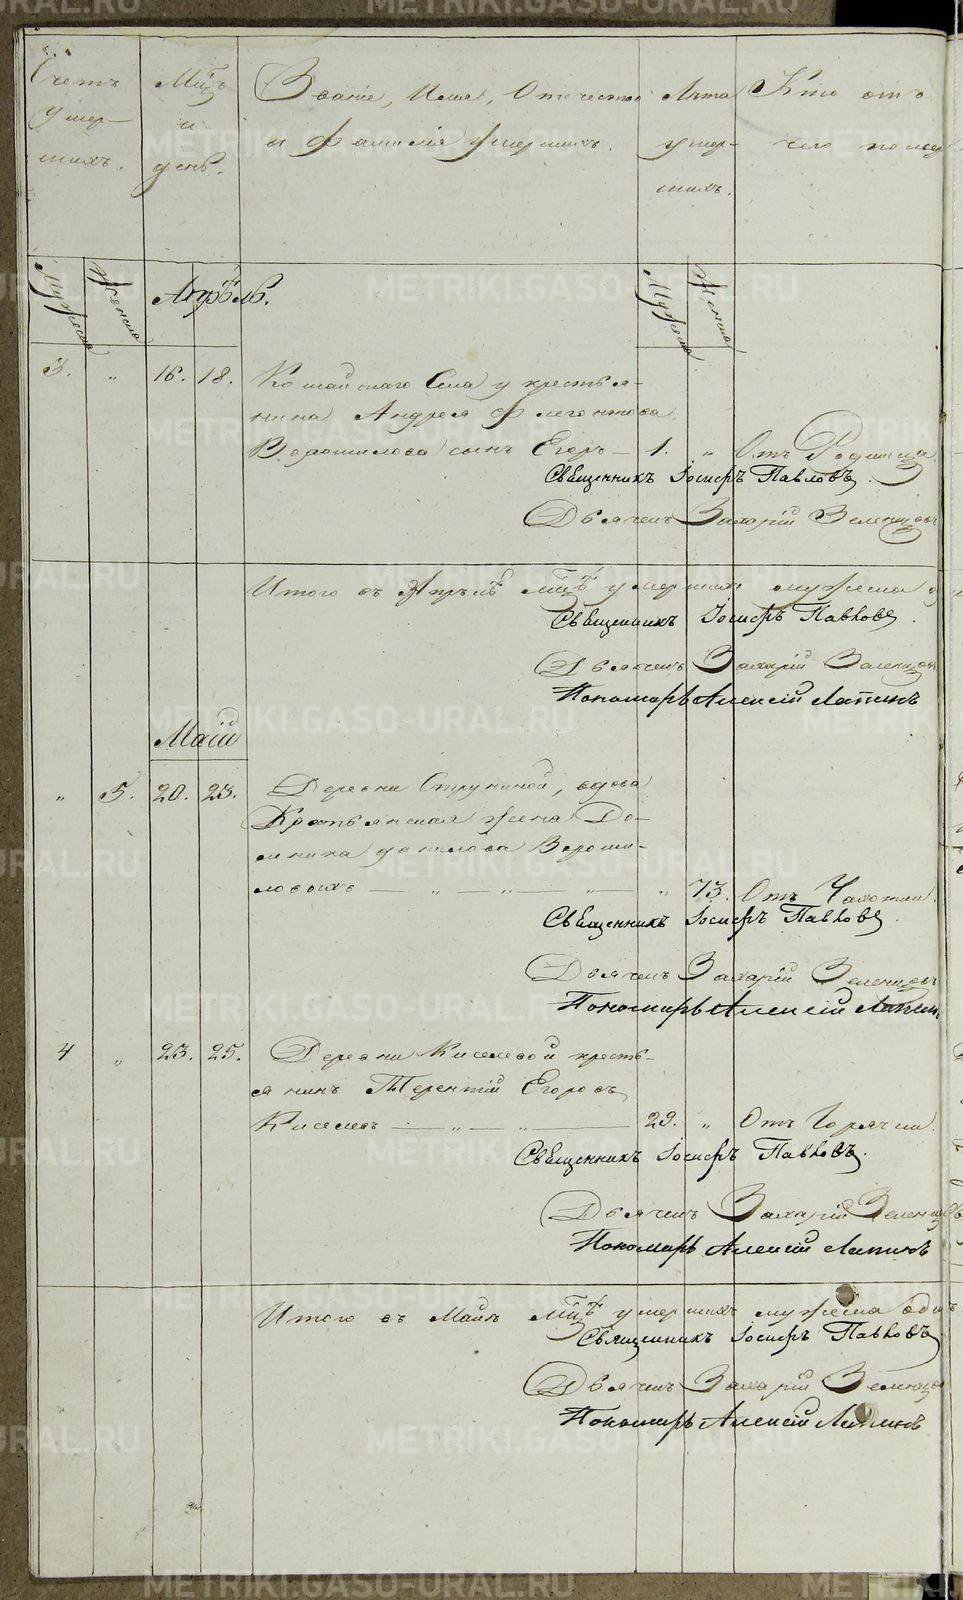 Счетъ умер- шихъ.
Мцъ и день.
Званіе, Имя, Отчество и Фамилія умершихъ.
Лѣта умер- шихъ.
Кто отъ чего померъ
Мужеска Женска
Апрѣль.
Мужеска Женска
3. „ 16. 18. Кошайскаго Села у крестья-
нина Андрея Флегонтова
Ворошилова сынъ Егоръ — 1. „ Отъ Родимца.
Священникъ Іосифъ Павловъ.
Дьячекъ Захарій Зеленцовъ
Итого въ Апрѣлѣ мцѣ умершихъ мужеска
Священникъ Іосифъ Павловъ.
Дьячекъ Захарій Зеленцовъ
Пономарь Алексій Лапинъ
Маій
„ 5. 20. 23. Деревни Струниной, вдова
Крестьянская жена До-
мника Данилова Вороши-
ловыхъ — „ — „ — „ — „ 73. Отъ Чахотки.
Священникъ Іосифъ Павловъ.
Дьячекъ Захарій Зеленцовъ
Пономарь Алексій Лапинъ
4 „ 23. 25. Деревни Киселевой кресть-
янинъ Терентій Егоровъ
Киселевъ — „ — „ — 29. „ Отъ Горячки.
Священникъ Іосифъ Павловъ.
Дьячекъ Захарій Зеленцовъ
Пономарь Алексій Лапинъ
Итого въ Маіѣ мцѣ умершихъ мужеска одинъ
Священникъ Іосифъ Павловъ
Дьячекъ Захарій Зеленцовъ
Пономарь Алексій Лапинъ
METRIKI.GASO-URAL.RU